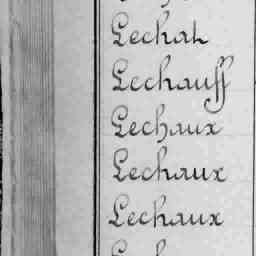 Lechat
Lechauff
Lechaux
Lechaux
Lechaux